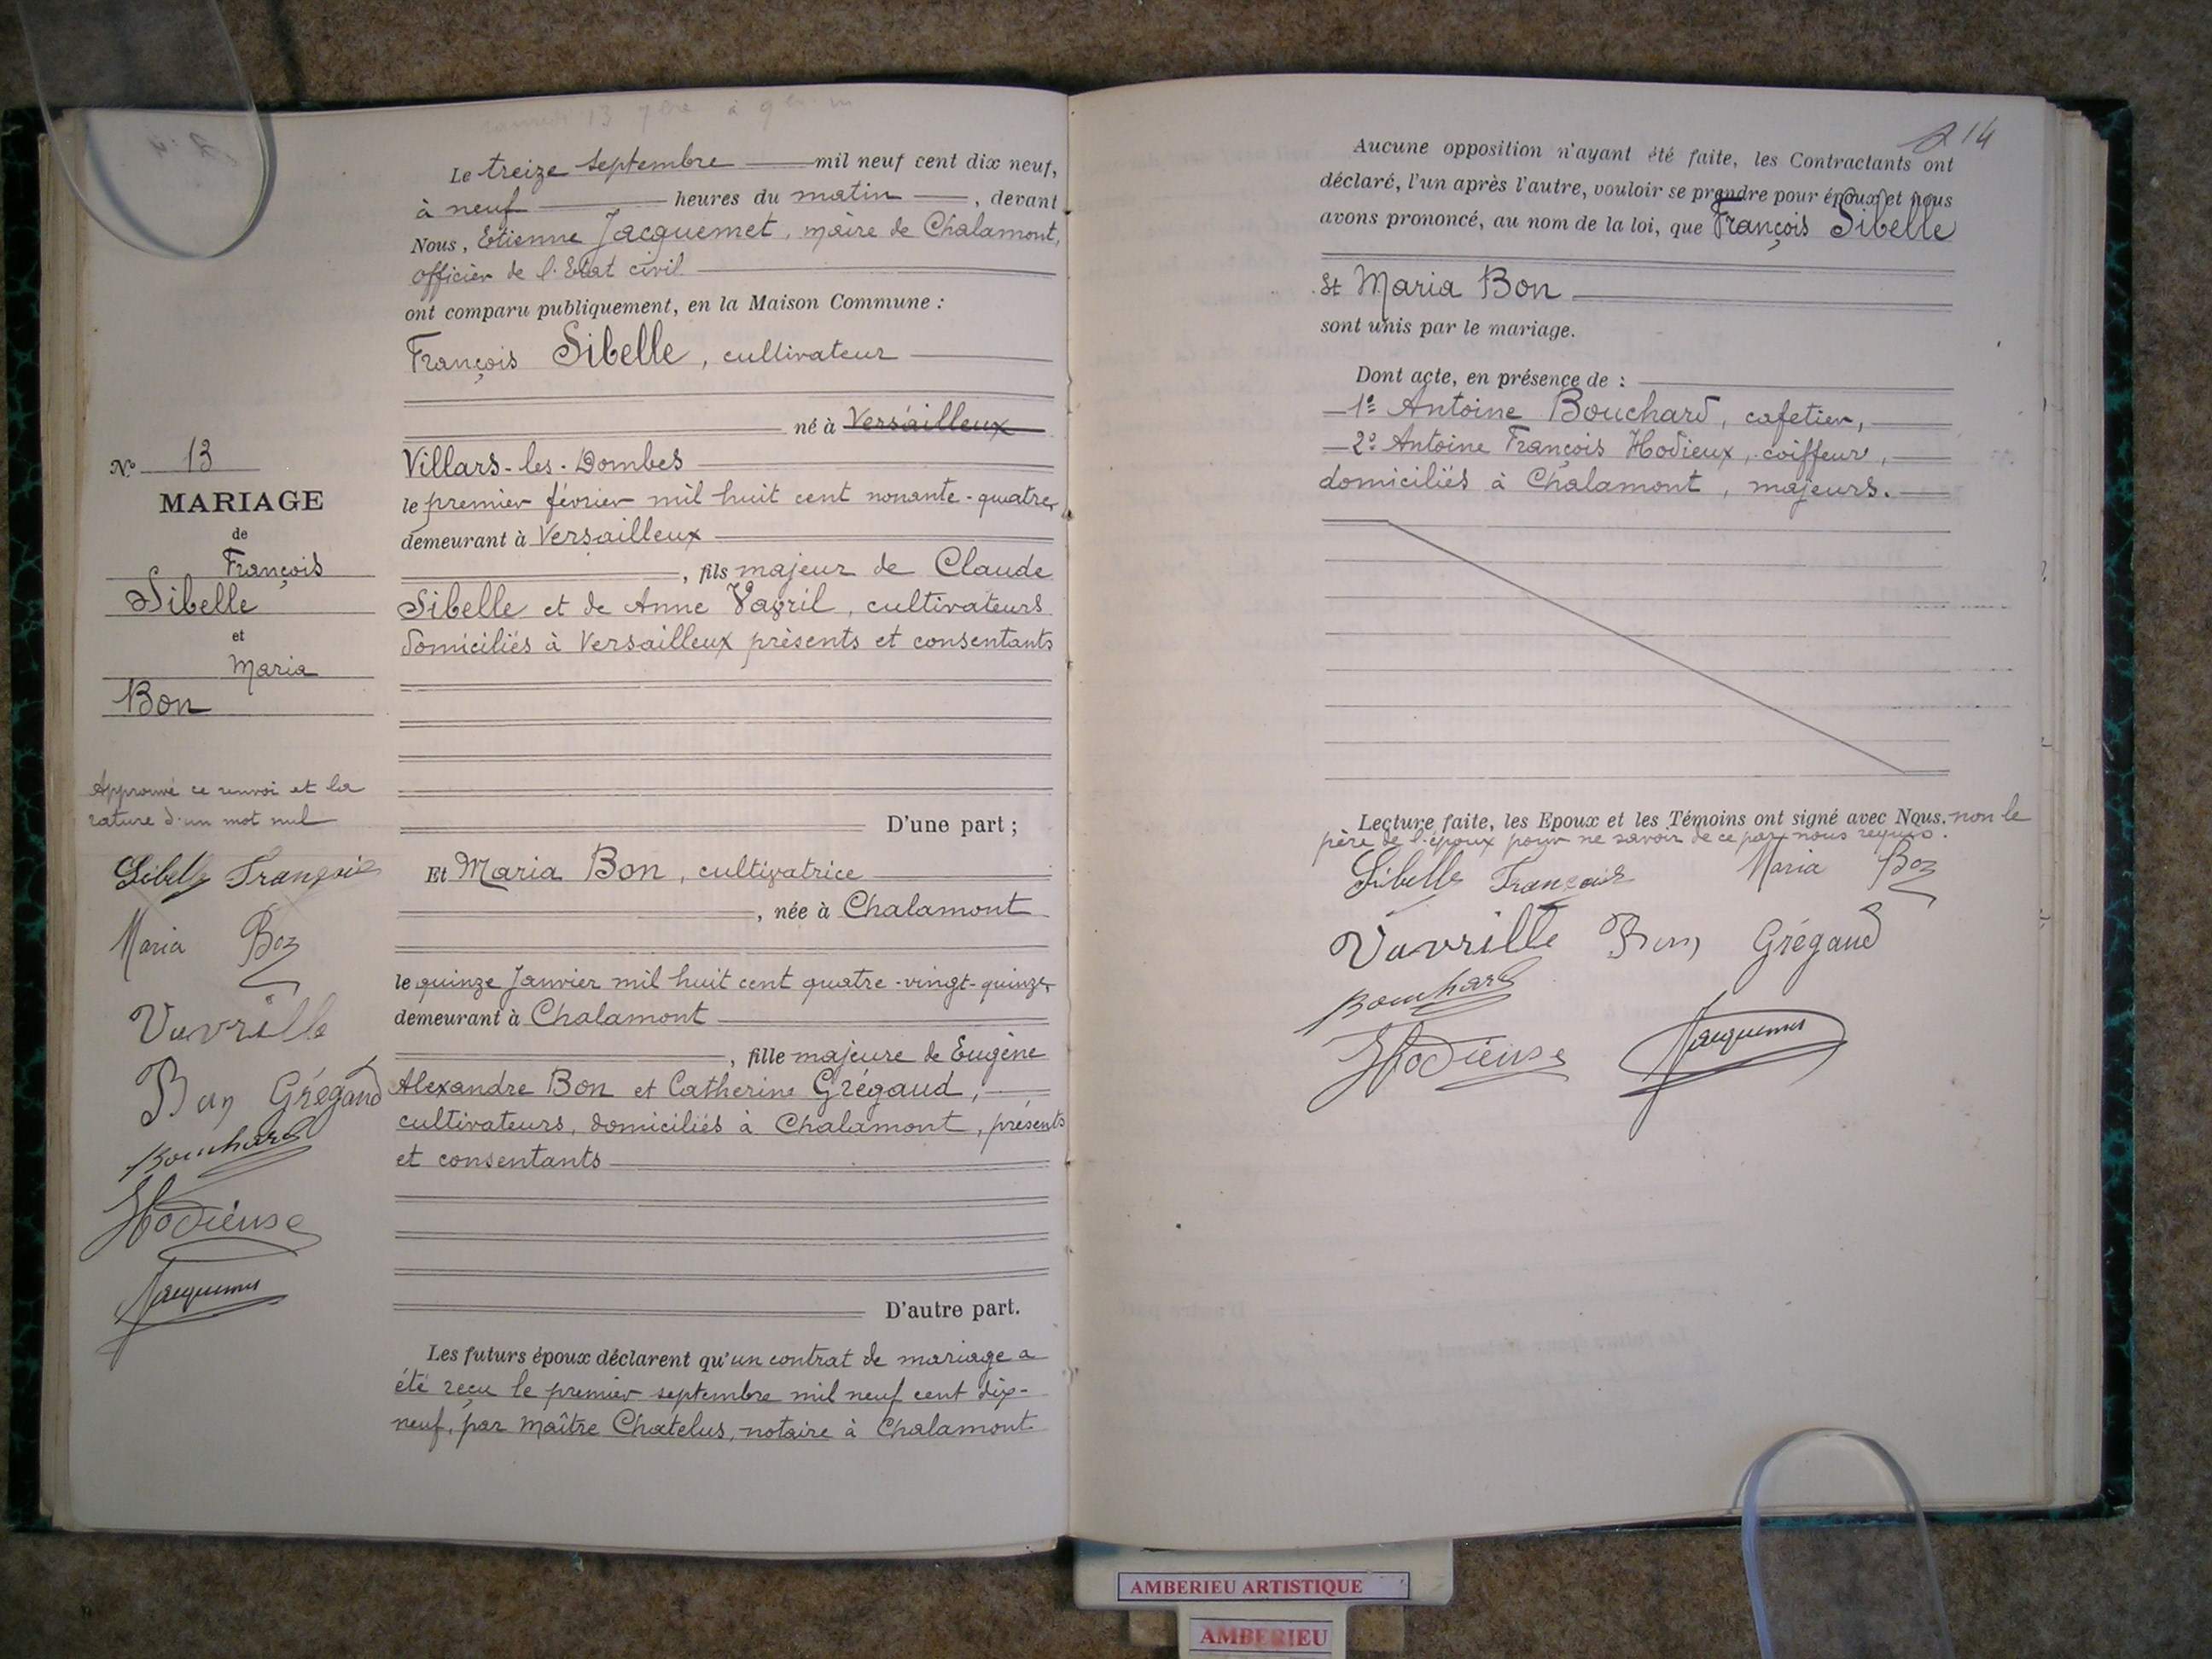 13 7bre à 9 h. m
Le treize septembre mil neuf cent dix neuf,
à neuf heures du matin, devant
Nous, Etienne Jacquemet, maire de Chalamont,
officier de l'Etat civil
ont comparu publiquement, en la Maison Commune :
François Sibelle, cultivateur
né à Versailleux
Villars-les-Dombes
le premier février mil huit cent nonante-quatre,
demeurant à Versailleux
, fils majeur de Claude
Sibelle et de Anne Vavril, cultivateurs
domiciliés à Versailleux présents et consentants
D'une part ;
Et Maria Bon, cultivatrice
, née à Chalamont
le quinze Janvier mil huit cent quatre-vingt-quinze,
demeurant à Chalamont
, fille majeure de Eugène
Alexandre Bon et Catherine Grégaud,
cultivateurs, domiciliés à Chalamont, présents
et consentants
D'autre part.
Les futurs époux déclarent qu'un contrat de mariage a
été reçu le premier septembre mil neuf cent dix-
neuf, par Maître Chatelus, notaire à Chalamont
No 13
MARIAGE
de
François
Sibelle
et
Maria
Bon
Approuvé ce renvoi et la
rature d'un mot nul
Sibelle François
Maria Bon
Vavrille
Bon Grégaud
Bouchard
Hodieuse
Jacquemet
14
Aucune opposition n'ayant été faite, les Contractants ont
déclaré, l'un après l'autre, vouloir se prendre pour époux et nous
avons prononcé, au nom de la loi, que François Sibelle
et Maria Bon
sont unis par le mariage.
Dont acte, en présence de :
1º Antoine Bouchard, cafetier,
2º Antoine François Hodieux, coiffeur,
domiciliés à Chalamont, majeurs.
Lecture faite, les Epoux et les Témoins ont signé avec Nous. non le
père de l'époux pour ne savoir de ce par nous requis.
Sibelle François Maria Bon
Vavrille Bon Grégaud
Bouchard
Hodieuse Jacquemet
AMBERIEU ARTISTIQUE
AMBERIEU